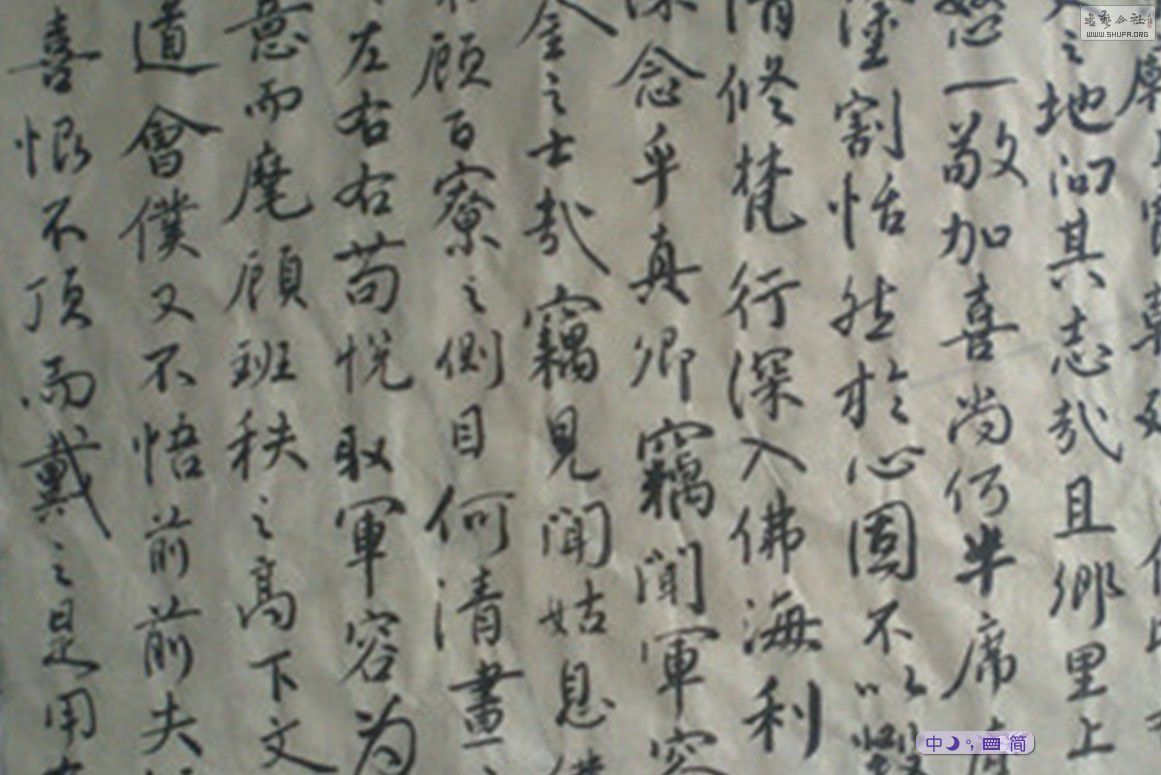 之地汩其志哉且鄉里上
怒一敬加喜尚何半席
塗割恬然於心固不以毀
清修梵行深入佛海利
深念乎真卿竊聞軍容
金之士哉竊見聞姑息
顧百寮之側目何清晝
左右右苟悅取軍容為
意而麾顧班秩之高下文
道會僕又不悟前前夫
喜恨不頂而戴之是用
WWW.SHUFA.ORG
中 简